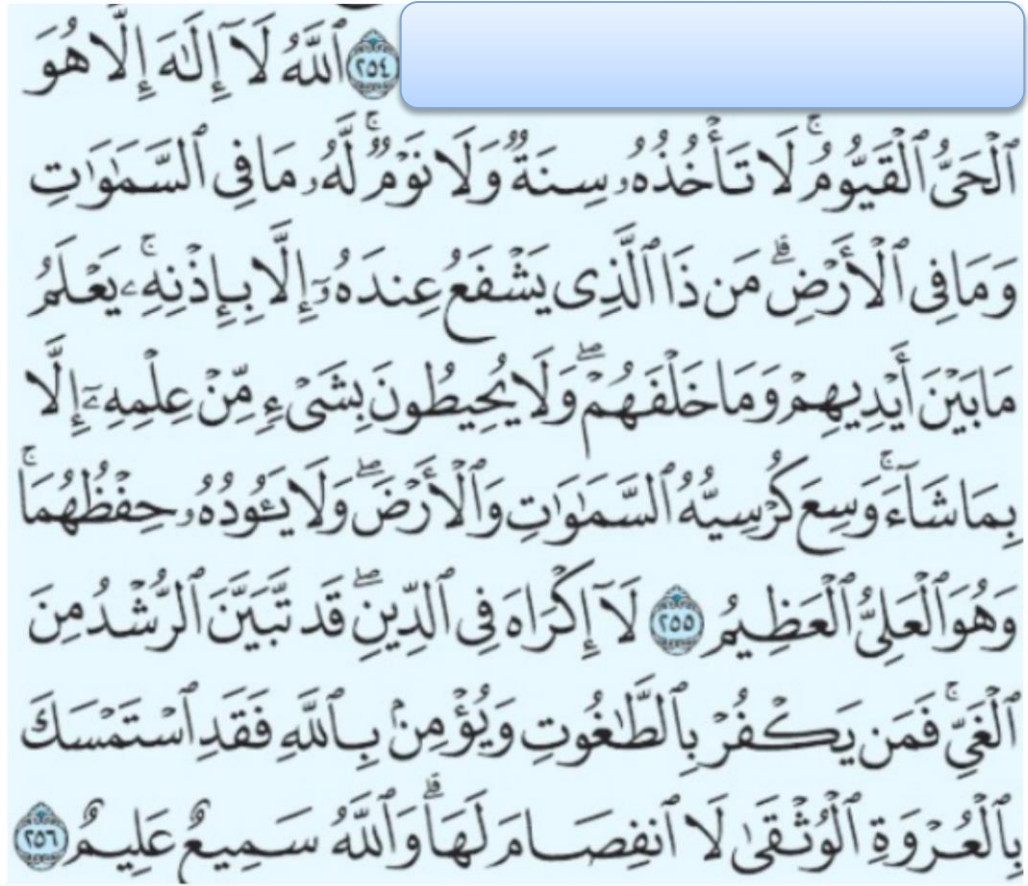 ٢٥٤ ٱللَّهُ لَآ إِلَٰهَ إِلَّا هُوَ
ٱلْحَىُّ ٱلْقَيُّومُ ۚ لَا تَأْخُذُهُۥ سِنَةٌ وَلَا نَوْمٌ ۚ لَّهُۥ مَا فِى ٱلسَّمَٰوَٰتِ
وَمَا فِى ٱلْأَرْضِ ۗ مَن ذَا ٱلَّذِى يَشْفَعُ عِندَهُۥٓ إِلَّا بِإِذْنِهِۦ ۚ يَعْلَمُ
مَا بَيْنَ أَيْدِيهِمْ وَمَا خَلْفَهُمْ ۖ وَلَا يُحِيطُونَ بِشَىْءٍ مِّنْ عِلْمِهِۦٓ إِلَّا
بِمَا شَآءَ ۚ وَسِعَ كُرْسِيُّهُ ٱلسَّمَٰوَٰتِ وَٱلْأَرْضَ ۖ وَلَا يَـُٔودُهُۥ حِفْظُهُمَا ۚ
وَهُوَ ٱلْعَلِىُّ ٱلْعَظِيمُ ٢٥٥ لَآ إِكْرَاهَ فِى ٱلدِّينِ ۖ قَد تَّبَيَّنَ ٱلرُّشْدُ مِنَ
ٱلْغَىِّ ۚ فَمَن يَكْفُرْ بِٱلطَّٰغُوتِ وَيُؤْمِنۢ بِٱللَّهِ فَقَدِ ٱسْتَمْسَكَ
بِٱلْعُرْوَةِ ٱلْوُثْقَىٰ لَا ٱنفِصَامَ لَهَا ۗ وَٱللَّهُ سَمِيعٌ عَلِيمٌ ٢٥٦